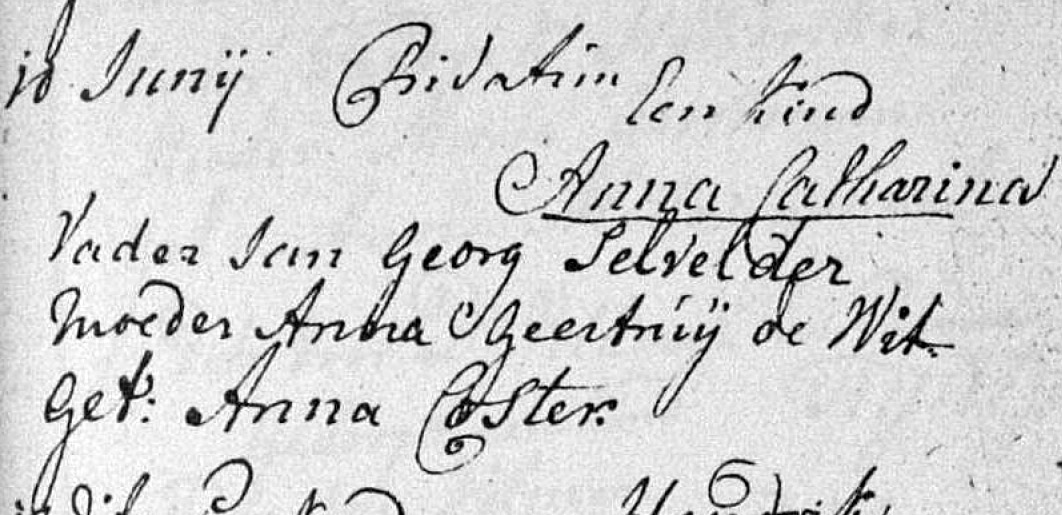 Junij Privatim Een Kind
Anna Catharina
Vader Jan Georg Selvelder
Moeder Anna Geertruij de Wit
Get: Anna Coster